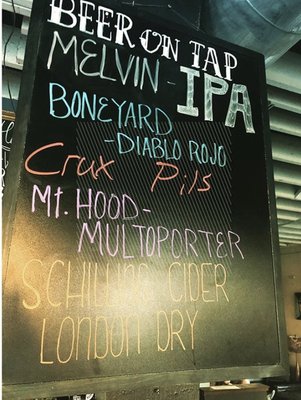 BEER ON TAP
MELVIN - IPA
BONEYARD
- DIABLO ROJO
Crux Pils
Mt. HOOD -
MULTOPORTER
SCHILLING CIDER
LONDON DRY